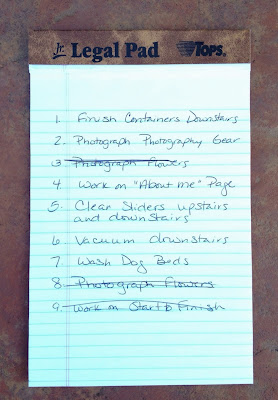 Jr. Legal Pad TOPS
1. Finish Containers Downstairs
2. Photograph Photography Gear
3. Photograph Flowers
4. Work on "About me" Page
5. Clean Sliders upstairs
and downstairs
6. Vacuum downstairs
7. Wash Dog Beds
8. Photograph Flowers
9. Work on Start to Finish